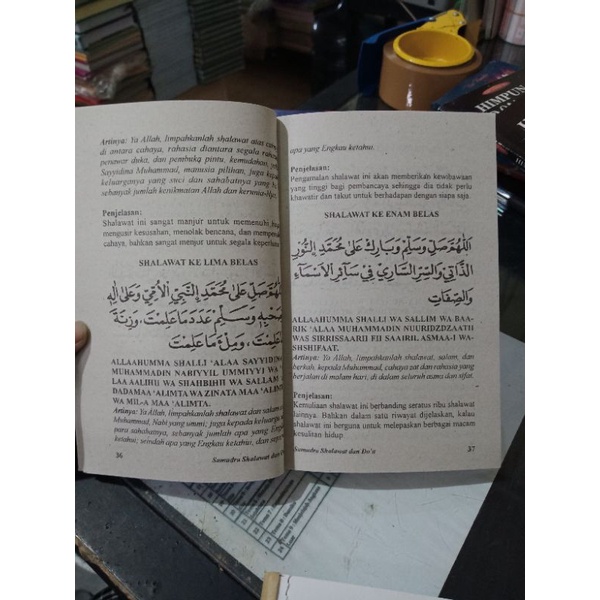 Artinya: Ya Allah, limpahkanlah shalawat atas
di antara cahaya, rahasia diantara segala
penawar duka, dan pembuka pintu, kemudahan,
Sayyidina Muhammad, manusia pilihan, juga
keluarganya yang suci dan sahabatnya yang
sejumlah kenikmatan Allah dan kerunia-Nya.
Penjelasan:
Shalawat ini sangat manjur untuk memenuhi
mengusir kesusahan, menolak bencana, dan
cahaya, bahkan sangat manjur untuk segala keperluan
SHALAWAT KE LIMA BELAS
صَلِّ عَلَى مُحَمَّدٍ النَّبِيِّ الْأُمِّيِّ وَعَلَى آلِهِ
وَسَلِّمْ عَدَدَ مَا عَلِمْتَ، وَزِنَةَ
عَلِمْتَ، وَمِلْءَ مَا عَلِمْتَ
ALLAAHUMMA SHALLI 'ALAA SAYYIDINA
MUHAMMADIN NABIYYIL UMMIYYI WA
LAA AALIHII WA SHAHBIHII WA SALLAM
DADAMAA 'ALIMTA WA ZINATA MAA 'ALIMTA
WA MIL-A MAA 'ALIMTA.
Artinya: Ya Allah, limpahkanlah shalawat dan salam
Muhammad, Nabi yang ummi; juga kepada keluarga
para sahabatnya, sebanyak jumlah apa yang Engkau
ketahui; seindah apa yang Engkau ketahui, dan
36
Samudra Shalawat dan
apa yang Engkau ketahui.
Penjelasan:
Pengamalan shalawat ini akan memberikan kewibawaan
yang tinggi bagi pembacanya sehingga dia tidak perlu
khawatir dan takut untuk berhadapan dengan siapa saja.
SHALAWAT KE ENAM BELAS
اَللّٰهُمَّ صَلِّ وَسَلِّمْ وَبَارِكْ عَلَى مُحَمَّدٍ النُّوْرِ
الذَّاتِيِّ وَالسِّرِّ السَّارِيْ فِيْ سَآئِرِ الْأَسْمَآءِ
وَالصِّفَاتِ
ALLAAHUMMA SHALLI WA SALLIM WA BAA-
RIK 'ALAA MUHAMMADIN NUURIDZDZAATII
WAS SIRRISSAARII FII SAAIRIL ASMAA-I WA-
SHSHIFAAT.
Artinya: Ya Allah, limpahkanlah shalawat, salam, dan
berkah, kepada Muhammad, cahaya zat dan rahasia yang
berjalan di malam hari, di dalam seluruh asma dan sifat.
Penjelasan:
Kemuliaan shalawat ini berbanding seratus ribu shalawat
lainnya. Bahkan dalam satu riwayat dijelaskan, kalau
shalawat ini berguna untuk melepaskan berbagai macam
kesulitan hidup
Samudra Shalawat dan Do'a
37
HIMPUN